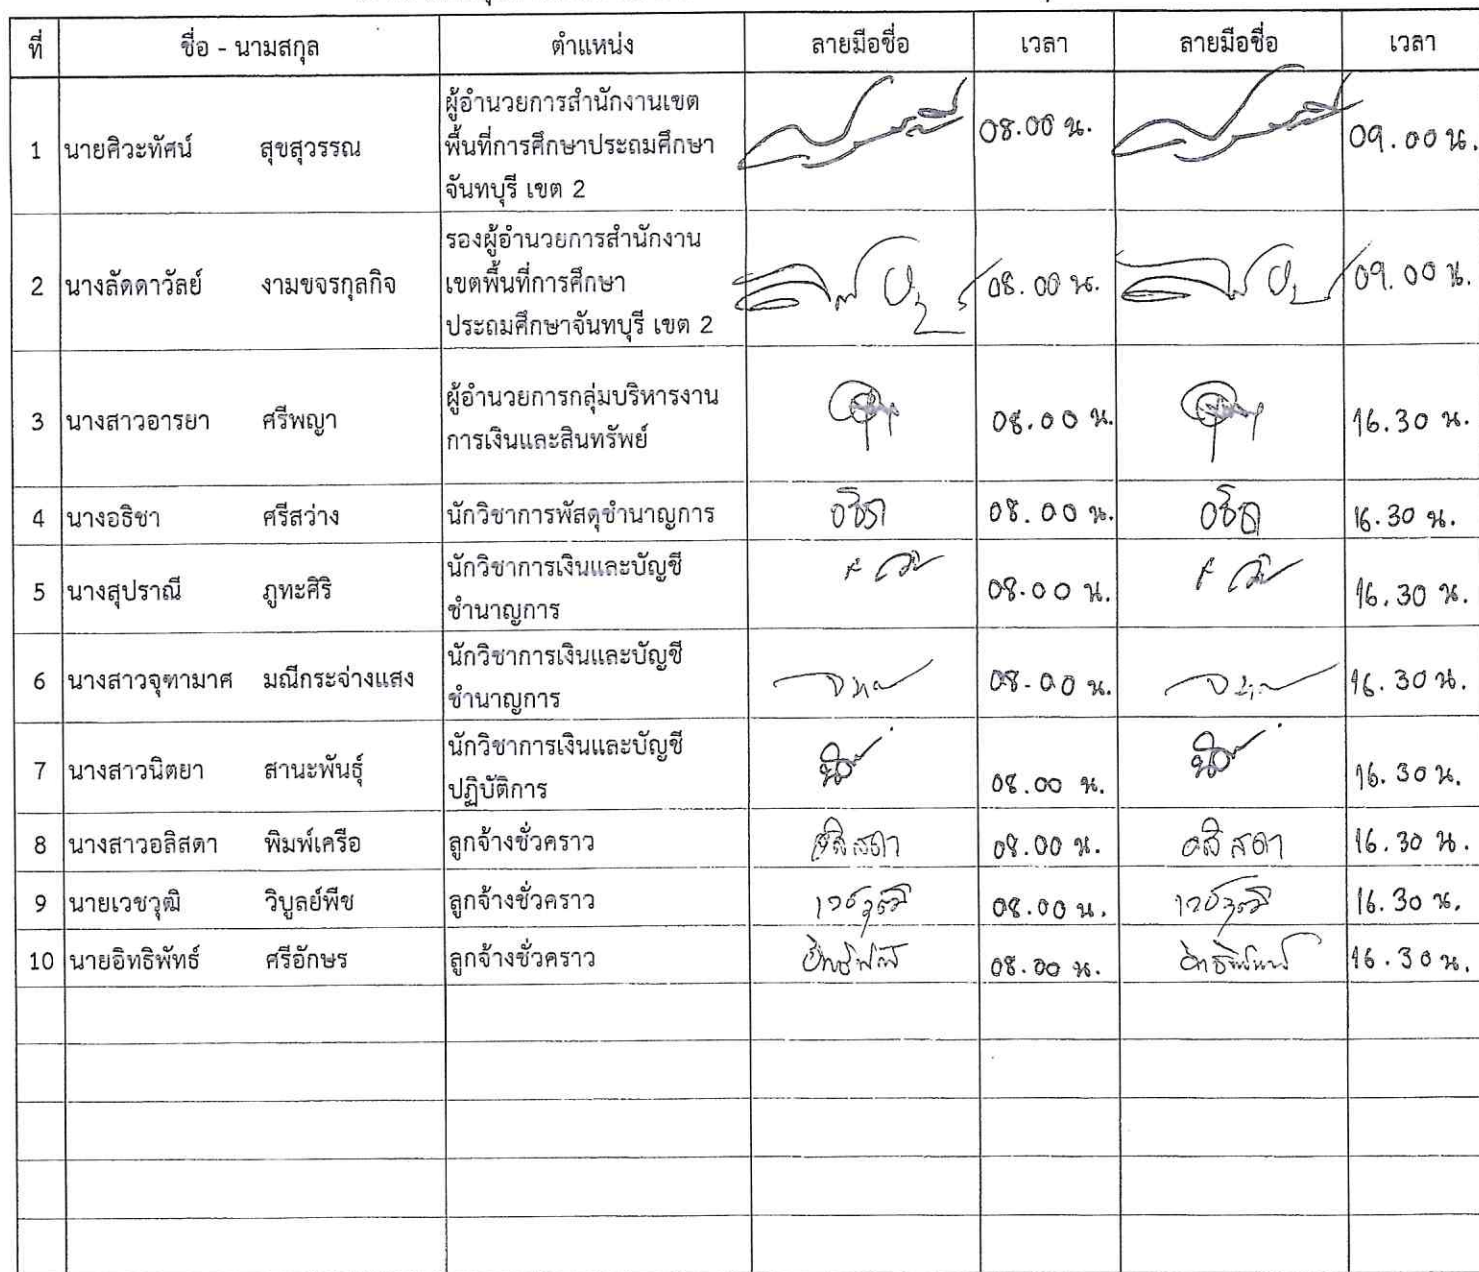 ที่ ชื่อ - นามสกุล ตำแหน่ง ลายมือชื่อ เวลา ลายมือชื่อ เวลา
1 นายศิวะทัศน์ สุขสุวรรณ ผู้อำนวยการสำนักงานเขต
พื้นที่การศึกษาประถมศึกษา
จันทบุรี เขต 2 08.00 น. 09.00 น.
2 นางลัดดาวัลย์ งามขจรกุลกิจ รองผู้อำนวยการสำนักงาน
เขตพื้นที่การศึกษา
ประถมศึกษาจันทบุรี เขต 2 08.00 น. 09.00 น.
3 นางสาวอารยา ศรีพญา ผู้อำนวยการกลุ่มบริหารงาน
การเงินและสินทรัพย์ 08.00 น. 16.30 น.
4 นางอธิชา ศรีสว่าง นักวิชาการพัสดุชำนาญการ อธิชา 08.00 น. อธิชา 16.30 น.
5 นางสุปราณี ภูทะศิริ นักวิชาการเงินและบัญชี
ชำนาญการ 08.00 น. 16.30 น.
6 นางสาวจุฑามาศ มณีกระจ่างแสง นักวิชาการเงินและบัญชี
ชำนาญการ 08.00 น. 16.30 น.
7 นางสาวนิตยา สานะพันธุ์ นักวิชาการเงินและบัญชี
ปฏิบัติการ 08.00 น. 16.30 น.
8 นางสาวอลิสดา พิมพ์เครือ ลูกจ้างชั่วคราว อลิสดา 08.00 น. อลิสดา 16.30 น.
9 นายเวชวุฒิ วิบูลย์พืช ลูกจ้างชั่วคราว เวชวุฒิ 08.00 น. เวชวุฒิ 16.30 น.
10 นายอิทธิพัทธ์ ศรีอักษร ลูกจ้างชั่วคราว อิทธิพัทธ์ 08.00 น. อิทธิพัทธ์ 16.30 น.